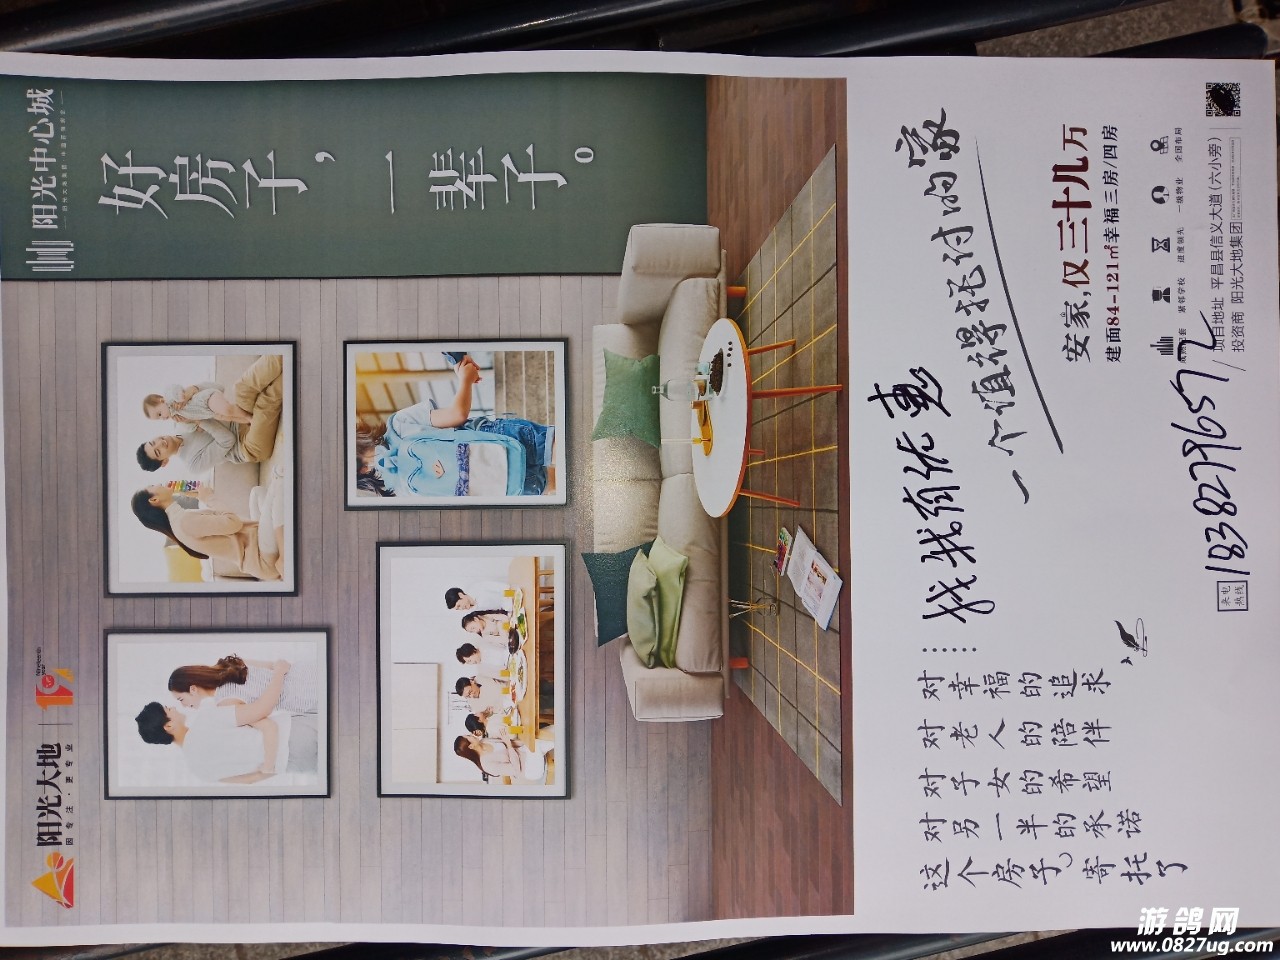 阳光大地
因专注·更专业
19
阳光中心城
好房子，一辈子。
这个房子，寄托了
对另一半的承诺
对子女的希望
对老人的陪伴
对幸福的追求
……
找我有优惠
一个值得托付的家
安家,仅三十几万
建面84-121㎡幸福三房/四房
紧邻学校
进度领先
一级物业
全国布局
来电热线
18382796572
项目地址 平昌县信义大道(六小旁)
投资商 阳光大地集团
游鸽网
www.0827ug.com